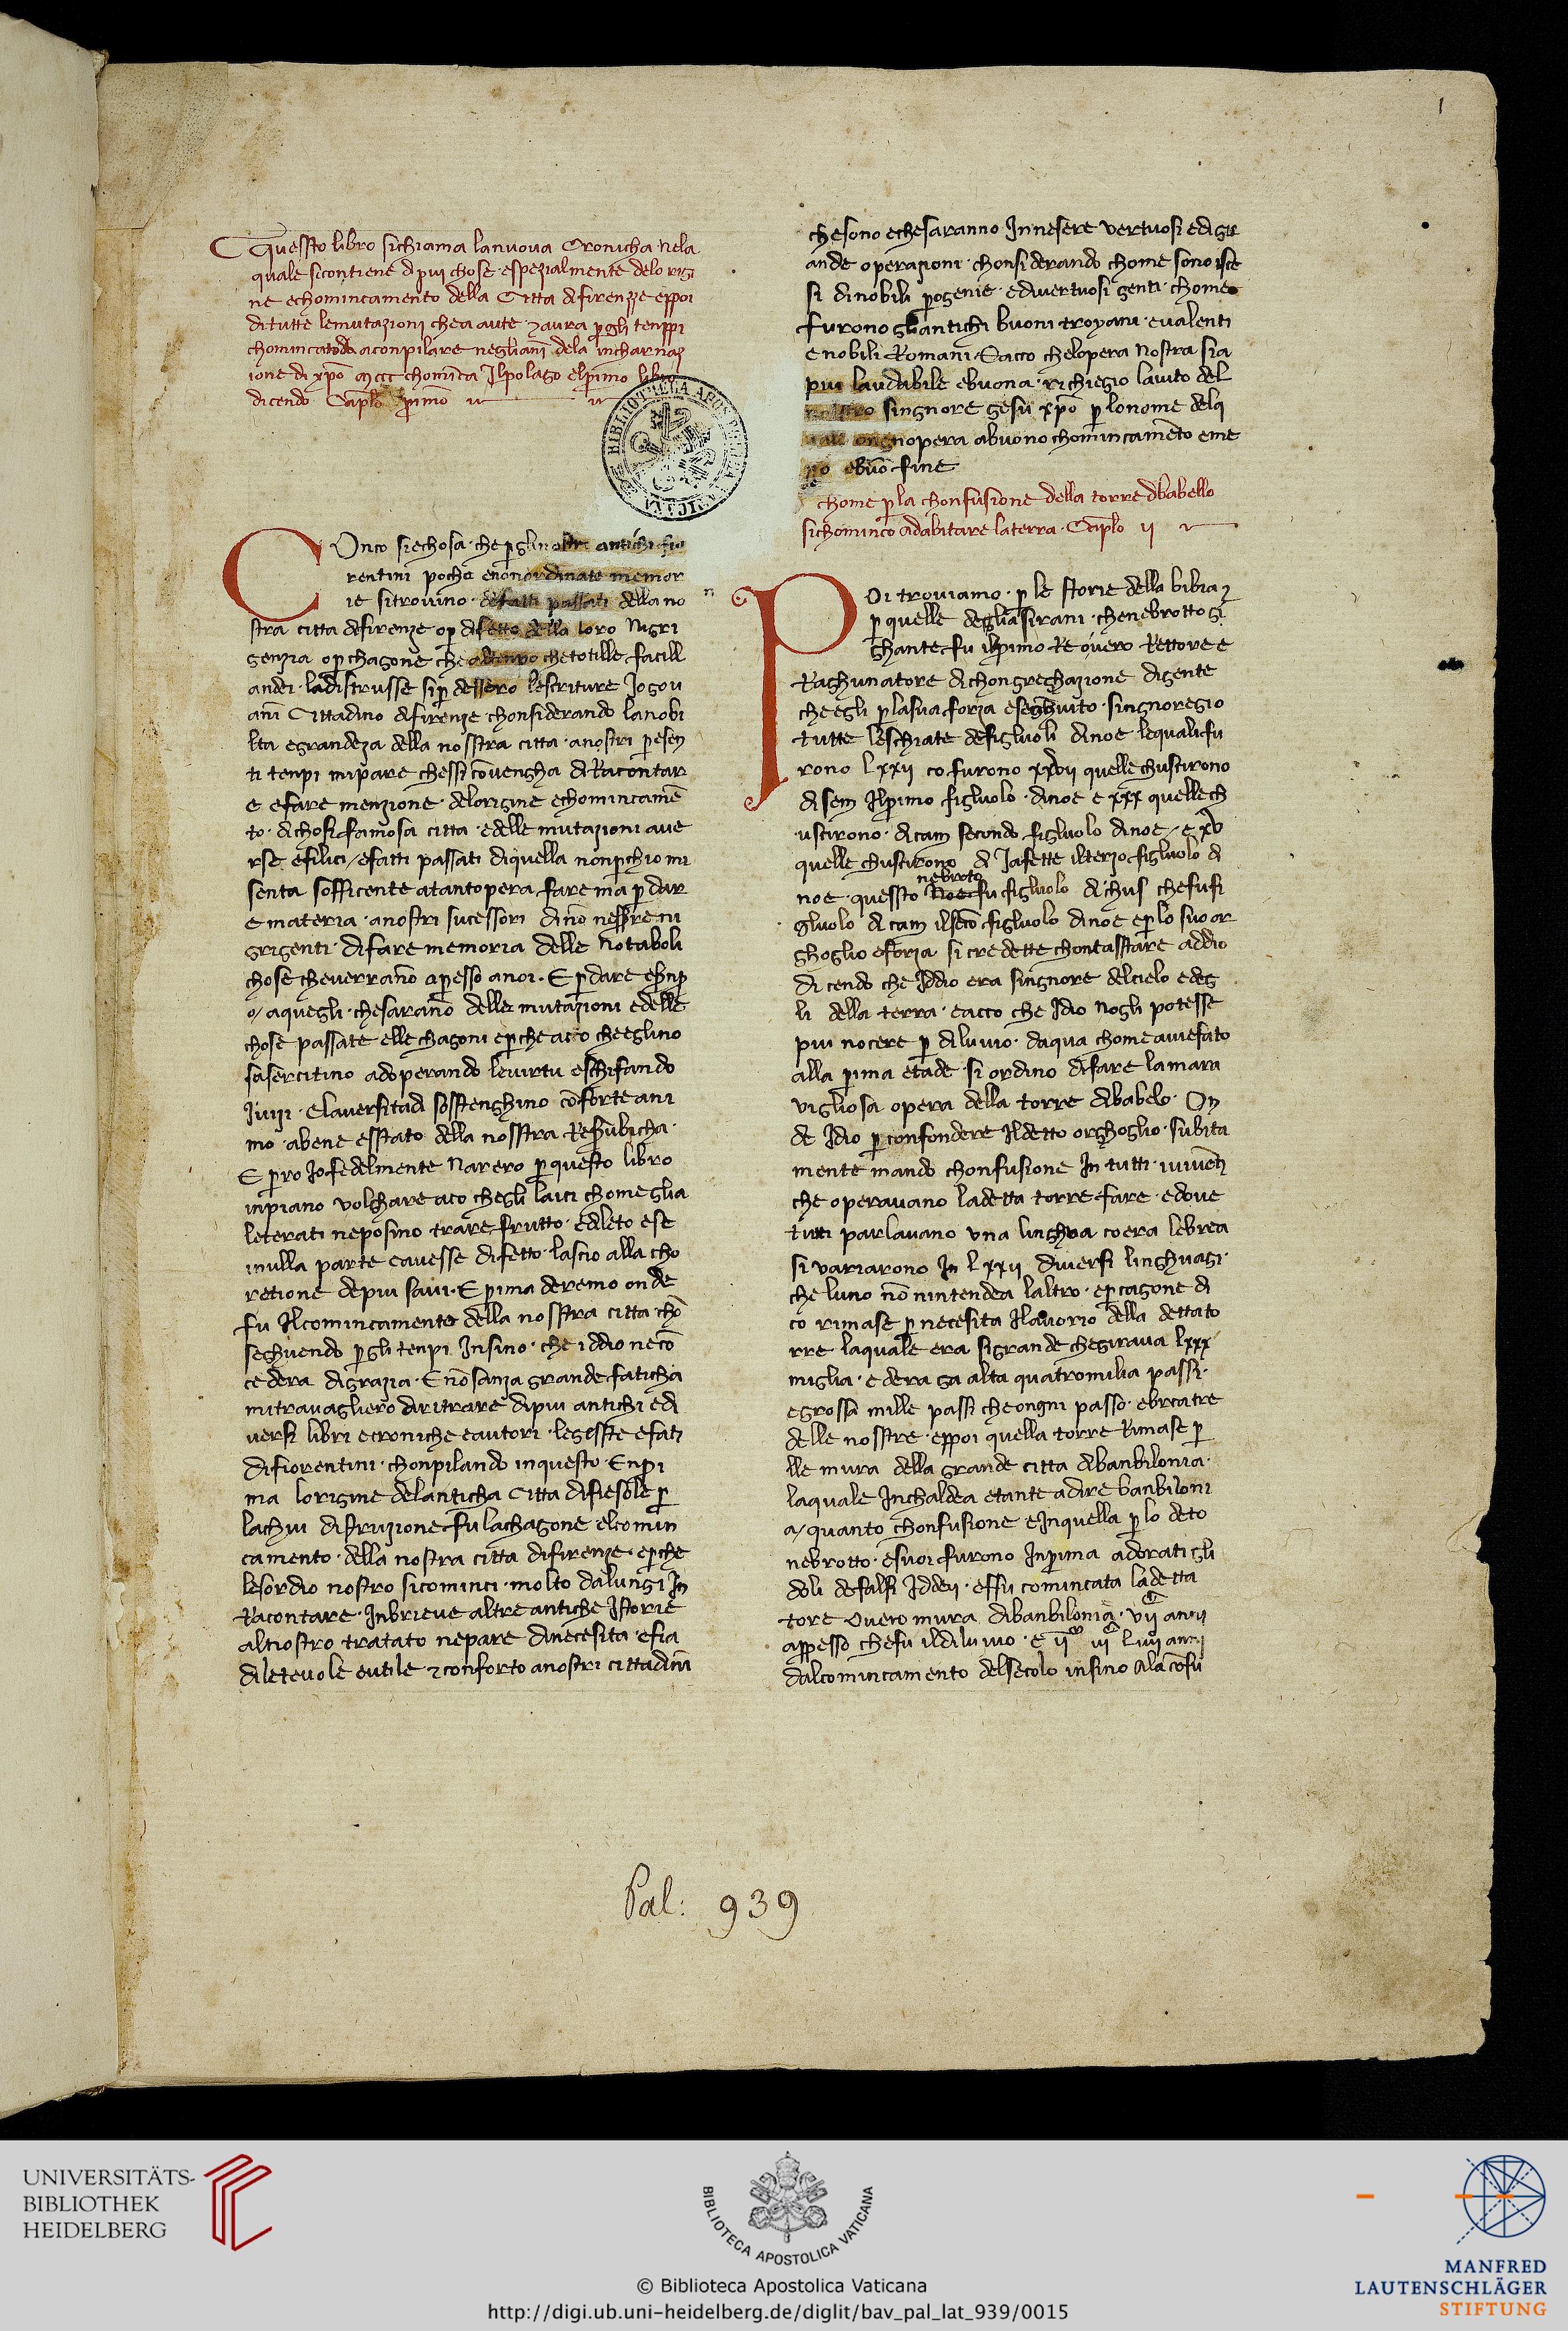 1
Questo libro sichiama lanuova Cronicha nela
quale sicontiene dpiu chose espezialmente delorig
ne echomincamento della Citta difirenze eppoi
ditutte lemutazioni chea aute ⁊aura p̱gli tenppi
chomincato aconpilare neglianī dela incharnaz
ione di xp̄o mccc chomīca Ilpolago elp̱imo libro
dicendo Capl̄o p̱imo
COnco siechosa · che p̱glinostri antichi fio
rentini poche enonordinate memor
ie sitrovino · defatti passati della no
stra citta difirenze · op̱ difetto della loro Nigri
genzia op̱ chagone che altenpo chetotille facill
andei · ladistrusse sip̱ dessero lescriture Jogou
anī Cittadino difirenze chonsiderando lanobi
lta egrandeza della nosstra citta · anostri p̱esen
ti tenpi mipare chessi cōvengha diRacontar
e efare menzione · delorigine echomincamē
to · dichosi famosa citta · edelle mutazioni aue
rse efilici / efatti passati diquella nonp̱chio mi
senta sofficente atantopera fare ma p̱ dar
e materia · anostri sucessori dinō nessere ni
grigenti · difare memoria delle Notaboli
chose cheverranō ap̱esso anoi · E p̱ dare esenp̱
o / aquegli · chesaranō delle mutazioni edelle
chose passate elle chagoni ep̱che acio cheeglino
sasercitino adoperando levirtu eschifando
Jvizi · elauersitadi sosstenghino cō forte ani
mo · abene esstato della nosstra Rep̱ubicha ·
E p̱ero Jofedelmente Narero p̱ questo libro
inpiano volghare aco chegli laici chome glia
leterati neposino trare frutto · ediletto ese
inulla parte cauesse difetto · lascio alla cho
retione depiu saui · E p̱ima deremo onde
fu Ilcomincamento della nosstra citta chō
seghuendo p̱gli tenpi Insino · che iddio necō
cedera digrazia · E nō sanza grande faticha
mitravagliero diritrare dipiu antichi edi
versi libri ecroniche eautori · legiesste efati
difiorentini · chonpilando inquesto · Enp̱i
ma lorigine delanticha Citta difiesole p̱
lachui distruzione fu lachagone elcomin
camento · della nostra citta difirenze · ep̱che
lesordio nostro sicominci · molto dalungi In
Racontare · Inbrieve altre antiche Istorie
alnostro tratato nepare dinecesita · efia
diletevole eutile ⁊ conforto anostri cittadinī
chesono echesaranno Innesere vertuosi edigr
ande operazioni · chonsiderando chome sono isce
si dinobili p̱ogenie · edivertuosi genti · chome
furono gliantichi buoni troyani · evalenti
enobili Romani · Eacco chelopera Nostra sia
piu laudabile ebuona · richiegio laiuto del
nostro singnore gesu xp̄o p̱ lonome delq
uale ongnopera abuono chomincamēto eme
zo ebuō fine
chome p̱la chonfusione della torre dbabello
sichominco adabitare laterra · Capl̄o ii
POi troviamo · p̱ le storie della bibia ⁊
p̱ quelle degliasirani · chenebrotto gi
ghante fu ilp̱imo Re overo Rettore e
Raghunatore dichongreghazione digente
che egli p̱lasua forza eseghuito · singnoregio
tutte leschiate defigluoli dinoe lequali fu
rono lxxii co furono xxvii quelle chuscirono
disem Ilp̱imo figluolo · dinoe e xxx quelle ch
uscirono · dicam secondo figluolo dinoe / e xv
quelle chuscirono di Jafette ilterzo figluolo di
noe · quessto nebroto fu figluolo dichus chefufi
gluolo dicam ilsecō figluolo dinoe ep̱ lo suo or
ghoglio eforza si credette chontasstare addio
dicendo che Iddio era singnore delcielo edeg
li della terra · eacco che Idio Nogli potesse
piu nocere p̱ diluvio · daqua chome avefato
alla p̱ima etade · si ordino difare lamara
vigliosa opera della torre dibabelo · On
de Idio p̱confondere Ildetto orghoglio · subita
mente mando chonfusione In tutti · iviventi
che operavano ladetta torre fare · edove
tutti parlavano una linghua coera lebrea
si variarono In lxxii diversi linghuagi ·
che luno nō nintendea laltro · ep̱ cagone di
co rimase p̱ necesita Ilavorio della dettato
rre laquale era sigrande chegirava lxxx
miglia · edera ga alta quatromilia passi ·
egrossa mille passi cheongni passo · ebrcatre
delle nosstre · eppoi quella torre Rimase p̱
lle mura della grande citta dibanbilonia ·
laquale Inchaldea etante adire banbiloni
a / quanto chonfusione eInquella p̱ lo deto
nebrotto · esuoi furono Inp̱ima adorati gli
doli defalsi Iddeii · effu comincata ladetta
tore overo mura dibanbilonia · vii anni
appesso chefu ildiluvio · e ii vi liiii anni
dalcomincamento delsecolo insino alacōfu
Pal: 939
UNIVERSITÄTS-
BIBLIOTHEK
HEIDELBERG
BIBLIOTECA APOSTOLICA VATICANA
© Biblioteca Apostolica Vaticana
http://digi.ub.uni-heidelberg.de/diglit/bav_pal_lat_939/0015
MANFRED
LAUTENSCHLÄGER
STIFTUNG